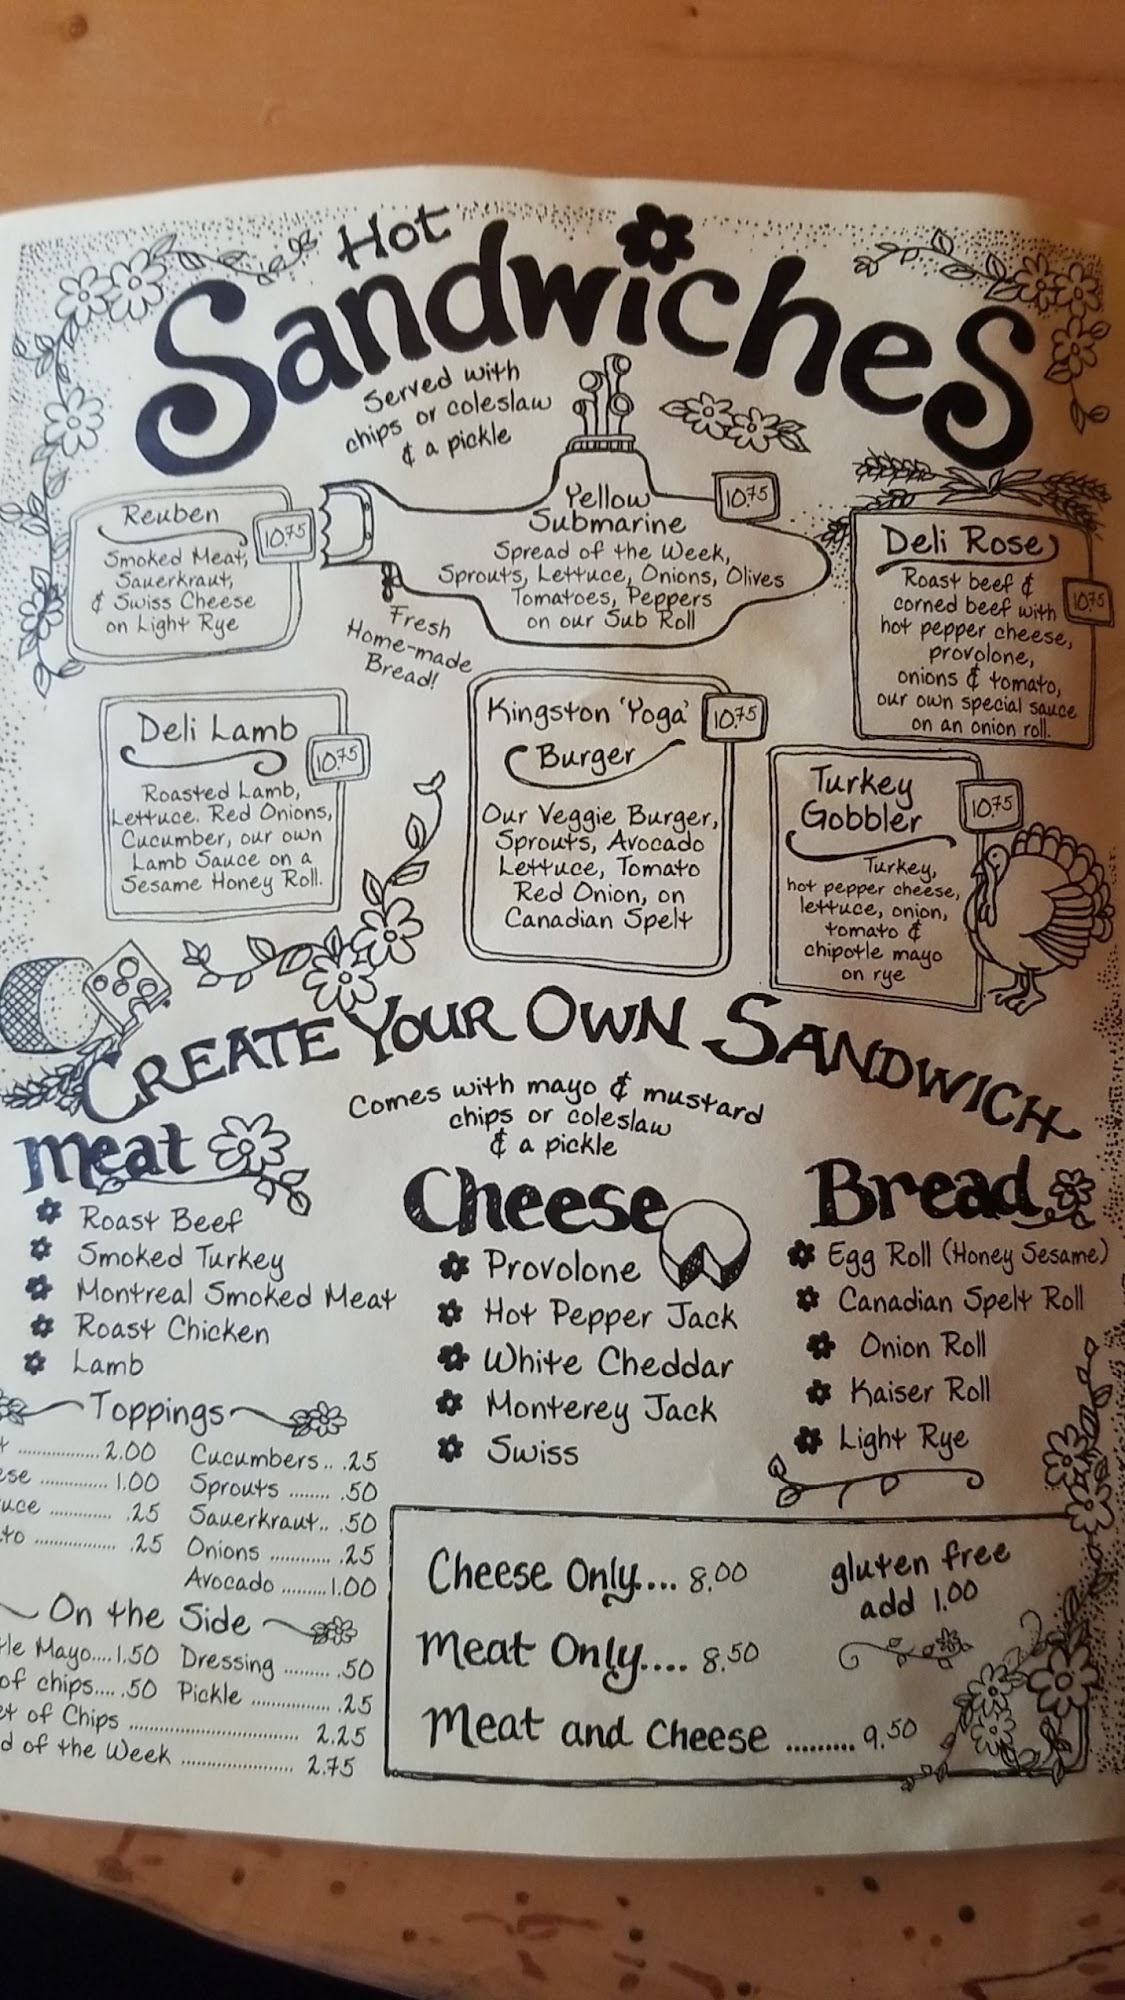 Hot
Sandwiches
Served with
chips or coleslaw
& a pickle
Reuben
10.75
Smoked Meat,
Sauerkraut,
& Swiss Cheese
on Light Rye
Yellow
Submarine
10.75
Spread of the Week,
Sprouts, Lettuce, Onions, Olives
Tomatoes, Peppers
on our Sub Roll
Fresh
Home-made
Bread!
Deli Rose
10.75
Roast beef &
corned beef with
hot pepper cheese,
provolone,
onions & tomato,
our own special sauce
on an onion roll.
Deli Lamb
10.75
Roasted Lamb,
Lettuce. Red Onions,
Cucumber, our own
Lamb Sauce on a
Sesame Honey Roll.
Kingston 'Yoga'
Burger
10.75
Our Veggie Burger,
Sprouts, Avocado
Lettuce, Tomato
Red Onion, on
Canadian Spelt
Turkey
Gobbler
10.75
Turkey,
hot pepper cheese,
lettuce, onion,
tomato &
chipotle mayo
on rye
CREATE YOUR OWN SANDWICH
Comes with mayo & mustard
chips or coleslaw
& a pickle
meat
Roast Beef
Smoked Turkey
Montreal Smoked Meat
Roast Chicken
Lamb
Cheese
Provolone
Hot Pepper Jack
White Cheddar
Monterey Jack
Swiss
Bread
Egg Roll (Honey Sesame)
Canadian Spelt Roll
Onion Roll
Kaiser Roll
Light Rye
Toppings
2.00
1.00
.25
.25
Cucumbers.. .25
Sprouts ........ .50
Sauerkraut.. .50
Onions ............. .25
Avocado .........1.00
On the Side
Mayo....1.50 Dressing ......... .50
of chips.... .50 Pickle .................. .25
of Chips ...................................... 2.25
of the Week ...................... 2.75
Cheese Only.... 8.00
Meat Only.... 8.50
Meat and Cheese ......... 9.50
gluten free
add 1.00